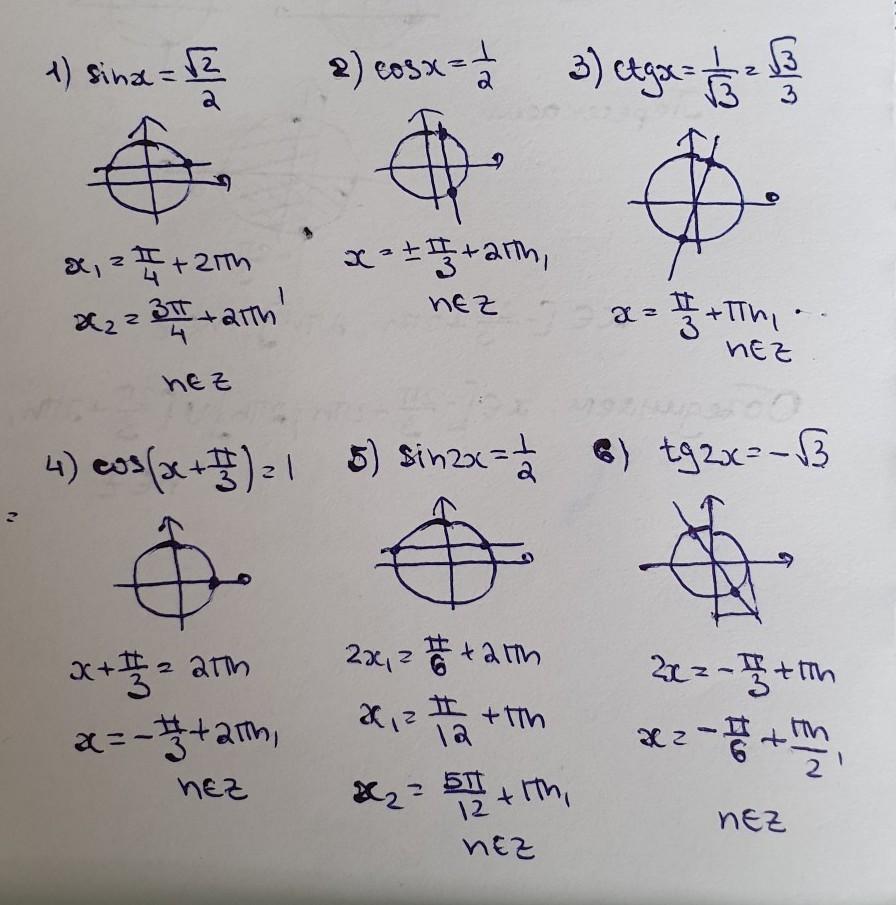 1) sinx = √2/2
x₁ = π/4 + 2πn
x₂ = 3π/4 + 2πn,
n∈Z
2) cosx = 1/2
x = ± π/3 + 2πn,
n∈Z
3) ctgx = 1/√3 = √3/3
x = π/3 + πn,
n∈Z
4) cos(x + π/3) = 1
x + π/3 = 2πn
x = -π/3 + 2πn,
n∈Z
5) sin2x = 1/2
2x₁ = π/6 + 2πn
x₁ = π/12 + πn
x₂ = 5π/12 + πn,
n∈Z
6) tg2x = -√3
2x = -π/3 + πn
x = -π/6 + πn/2,
n∈Z